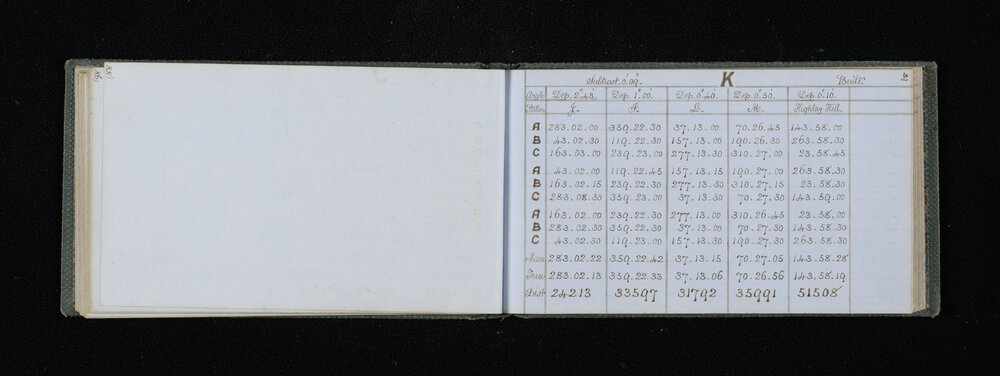 88)
Subtract 0.09. K Built
Angle Dep. 2.43. Dep. 1.00. Dep. 0.40. Dep. 0.50. Dep 0.10.
Station J. L. M. Highlay Hill.
A 283.02.00 359.22.30 37.13.00 70.26.45 143.58.00
B 43.02.30 119.22.30 157.13.00 190.26.30 263.58.30
C 163.03.00 239.23.00 277.13.30 310.27.00 23.58.45
A 43.02.00 119.22.45 157.13.15 190.27.00 263.58.30
B 163.02.15 239.22.30 277.13.30 310.27.15 23.58.30
C 283.03.30 359.23.00 37.13.30 70.27.30 143.59.00
A 163.02.00 239.22.30 277.13.00 310.26.45 23.58.00
B 283.02.30 359.22.30 37.13.00 70.27.30 143.58.30
C 43.02.30 119.23.00 157.13.30 190.27.30 263.58.30
Mean 283.02.22 359.22.42 37.13.15 70.27.05 143.58.28
True 283.02.13 359.22.33 37.13.06 70.26.56 143.58.19
Dist 24213 33597 31792 35991 51508